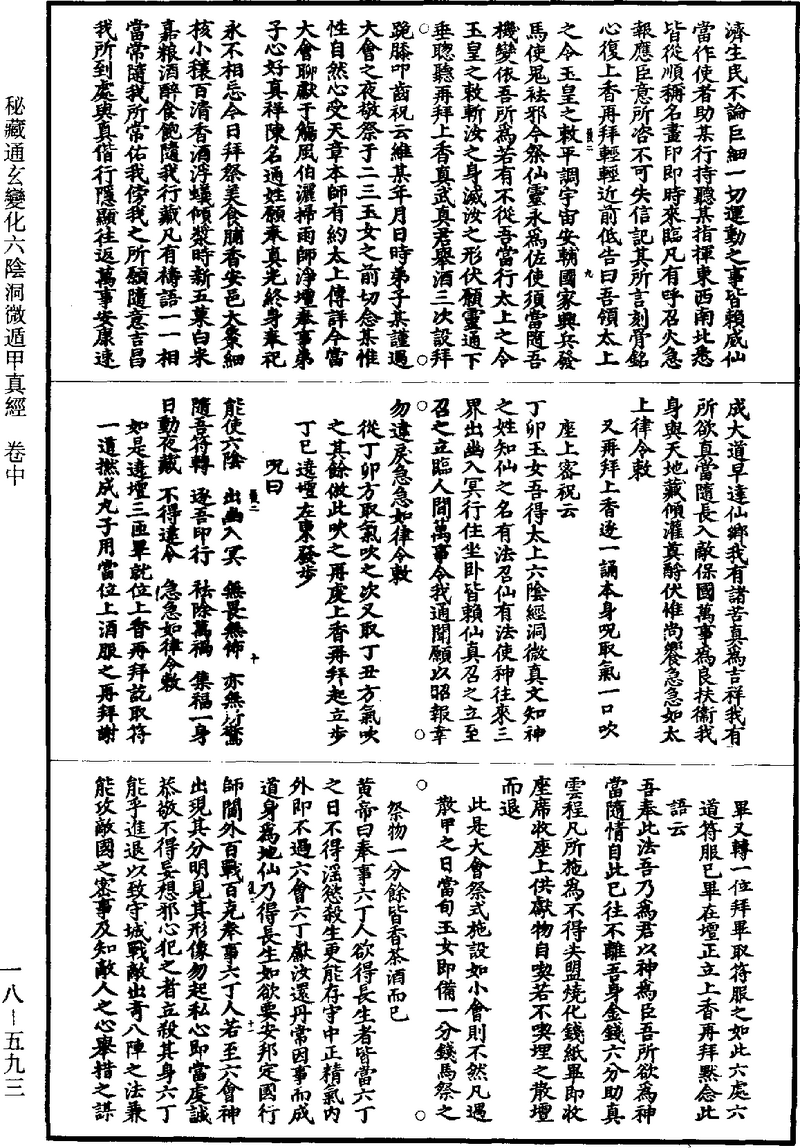 濟生民不論巨細一切運動之事皆賴威仙
當作使者助某行持聽某指揮東西南北悉
皆從順稱名畫印即時來臨凡有呼召火急
報應臣意所咨不可失信記其所言刻骨銘
心復上香再拜輕輕近前低告曰吾領太上
之令玉皇之敕平調宇宙安輔國家興兵發
馬使鬼祛邪今祭仙靈永為佐使須當隨吾
機變依吾所為若有不從吾當行太上之令
玉皇之敕斬汝之身滅汝之形伏願靈通下
垂聰聽再拜上香真武真君舉酒三次設拜
跪膝叩齒祝云維某年月日時弟子某謹遇
大會之夜敬祭于二三玉女之前切念某惟
性自然心受天章本師有約太上傳詳今當
大會聊獻于觴風伯灑掃雨師淨壇奉事弟
子心好真祥陳名通姓願奉真光終身奉祀
永不相忘今日拜祭美食脯香安邑大棗細
核小穰百清香酒浮蟻傾漿時新五菓白米
嘉粮酒醉食飽隨我行藏凡有禱語一一相
當常隨我所常佑我傍我之所願隨意吉昌
我所到處與真偕行隱顯往返萬事安康速
成大道早達仙鄉我有諸苦真為吉祥我有
所欲真當隨長入敵保國萬事為良扶衛我
身與天地藏傾灌奠酹伏惟尚饗急急如太
上律令敕
又再拜上香遂一誦本身呪取氣一口吹
座上密祝云
丁卯玉女吾得太上六陰經洞微真文知神
之姓知仙之名有法召仙有法使神往來三
界出幽入冥行住坐卧皆賴仙真召之立至
召之立臨人間萬事令我通聞願以昭報幸
勿違戾急急如律令敕
從丁卯方取氣吹之次又取丁丑方氣吹
之其餘倣此吹之再虔上香再拜起立步
丁巳遶壇左東發步
呪曰
能使六陰　出幽入冥　無畏無怖　亦無所驚
隨吾符轉　逐吾印行　祛除萬禍　集福一身
日動夜藏　不得違令　急急如律令敕
如是遶壇三匝畢就位上香再拜訖取符
一道撚成丸子用當位上酒服之再拜謝
畢又轉一位拜畢取符服之如此六處六
道符服已畢在壇正立上香再拜黙念此
語云
吾奉此法吾乃為君以神為臣吾所欲為神
當隨情自此已往不離吾身金錢六分助真
雲程凡所施為不得失盟燒化錢紙畢即收
座席收座上供獻物自喫若不喫埋之散壇
而退
此是大會祭式施設如小會則不然凡遇
散甲之日當旬玉女即備一分錢馬祭之
祭物一分餘皆香茶酒而已
黄帝曰奉事六丁人欲得長生者皆當六丁
之日不得淫慾殺生更能存守中正精氣内
外即不過六會六丁獻汝還丹常因事而成
道身為地仙乃得長生如欲要安邦定國行
師閫外百戰百克奉事六丁人若至六會神
出現其分明見其形像勿起私心即當虔誠
恭敬不得妄想邪心犯之者立殺其身六丁
能乎進退以致守城戰敵出奇八陣之法兼
能攻敵國之密事及知敵人之心舉措之謀
秘藏通玄變化六陰洞微遁甲真經　卷中
一八－五九三